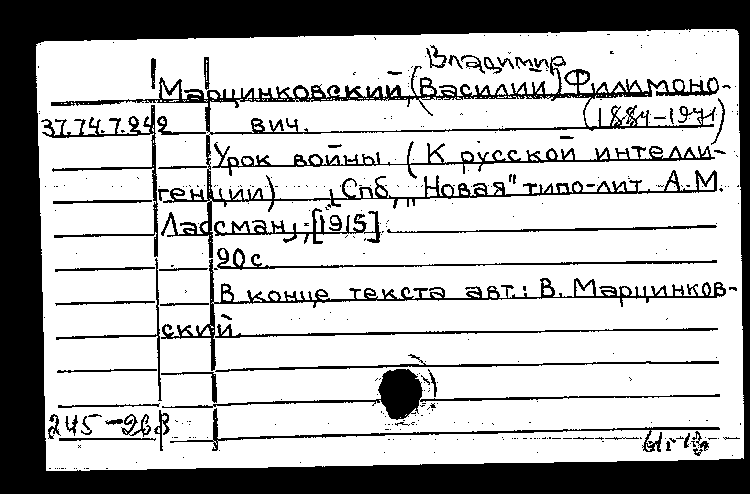 Владимир
Марцинковский, (Василии) Филимоно-
37.74.7.242 вич. (1884-1971)
Урок войны. (К русской интелли-
генции) [Спб, „Новая" типо-лит. А.М.
Лассман], [1915].
20 с.
В конце текста авт.: В. Марцинков-
ский.
245-263